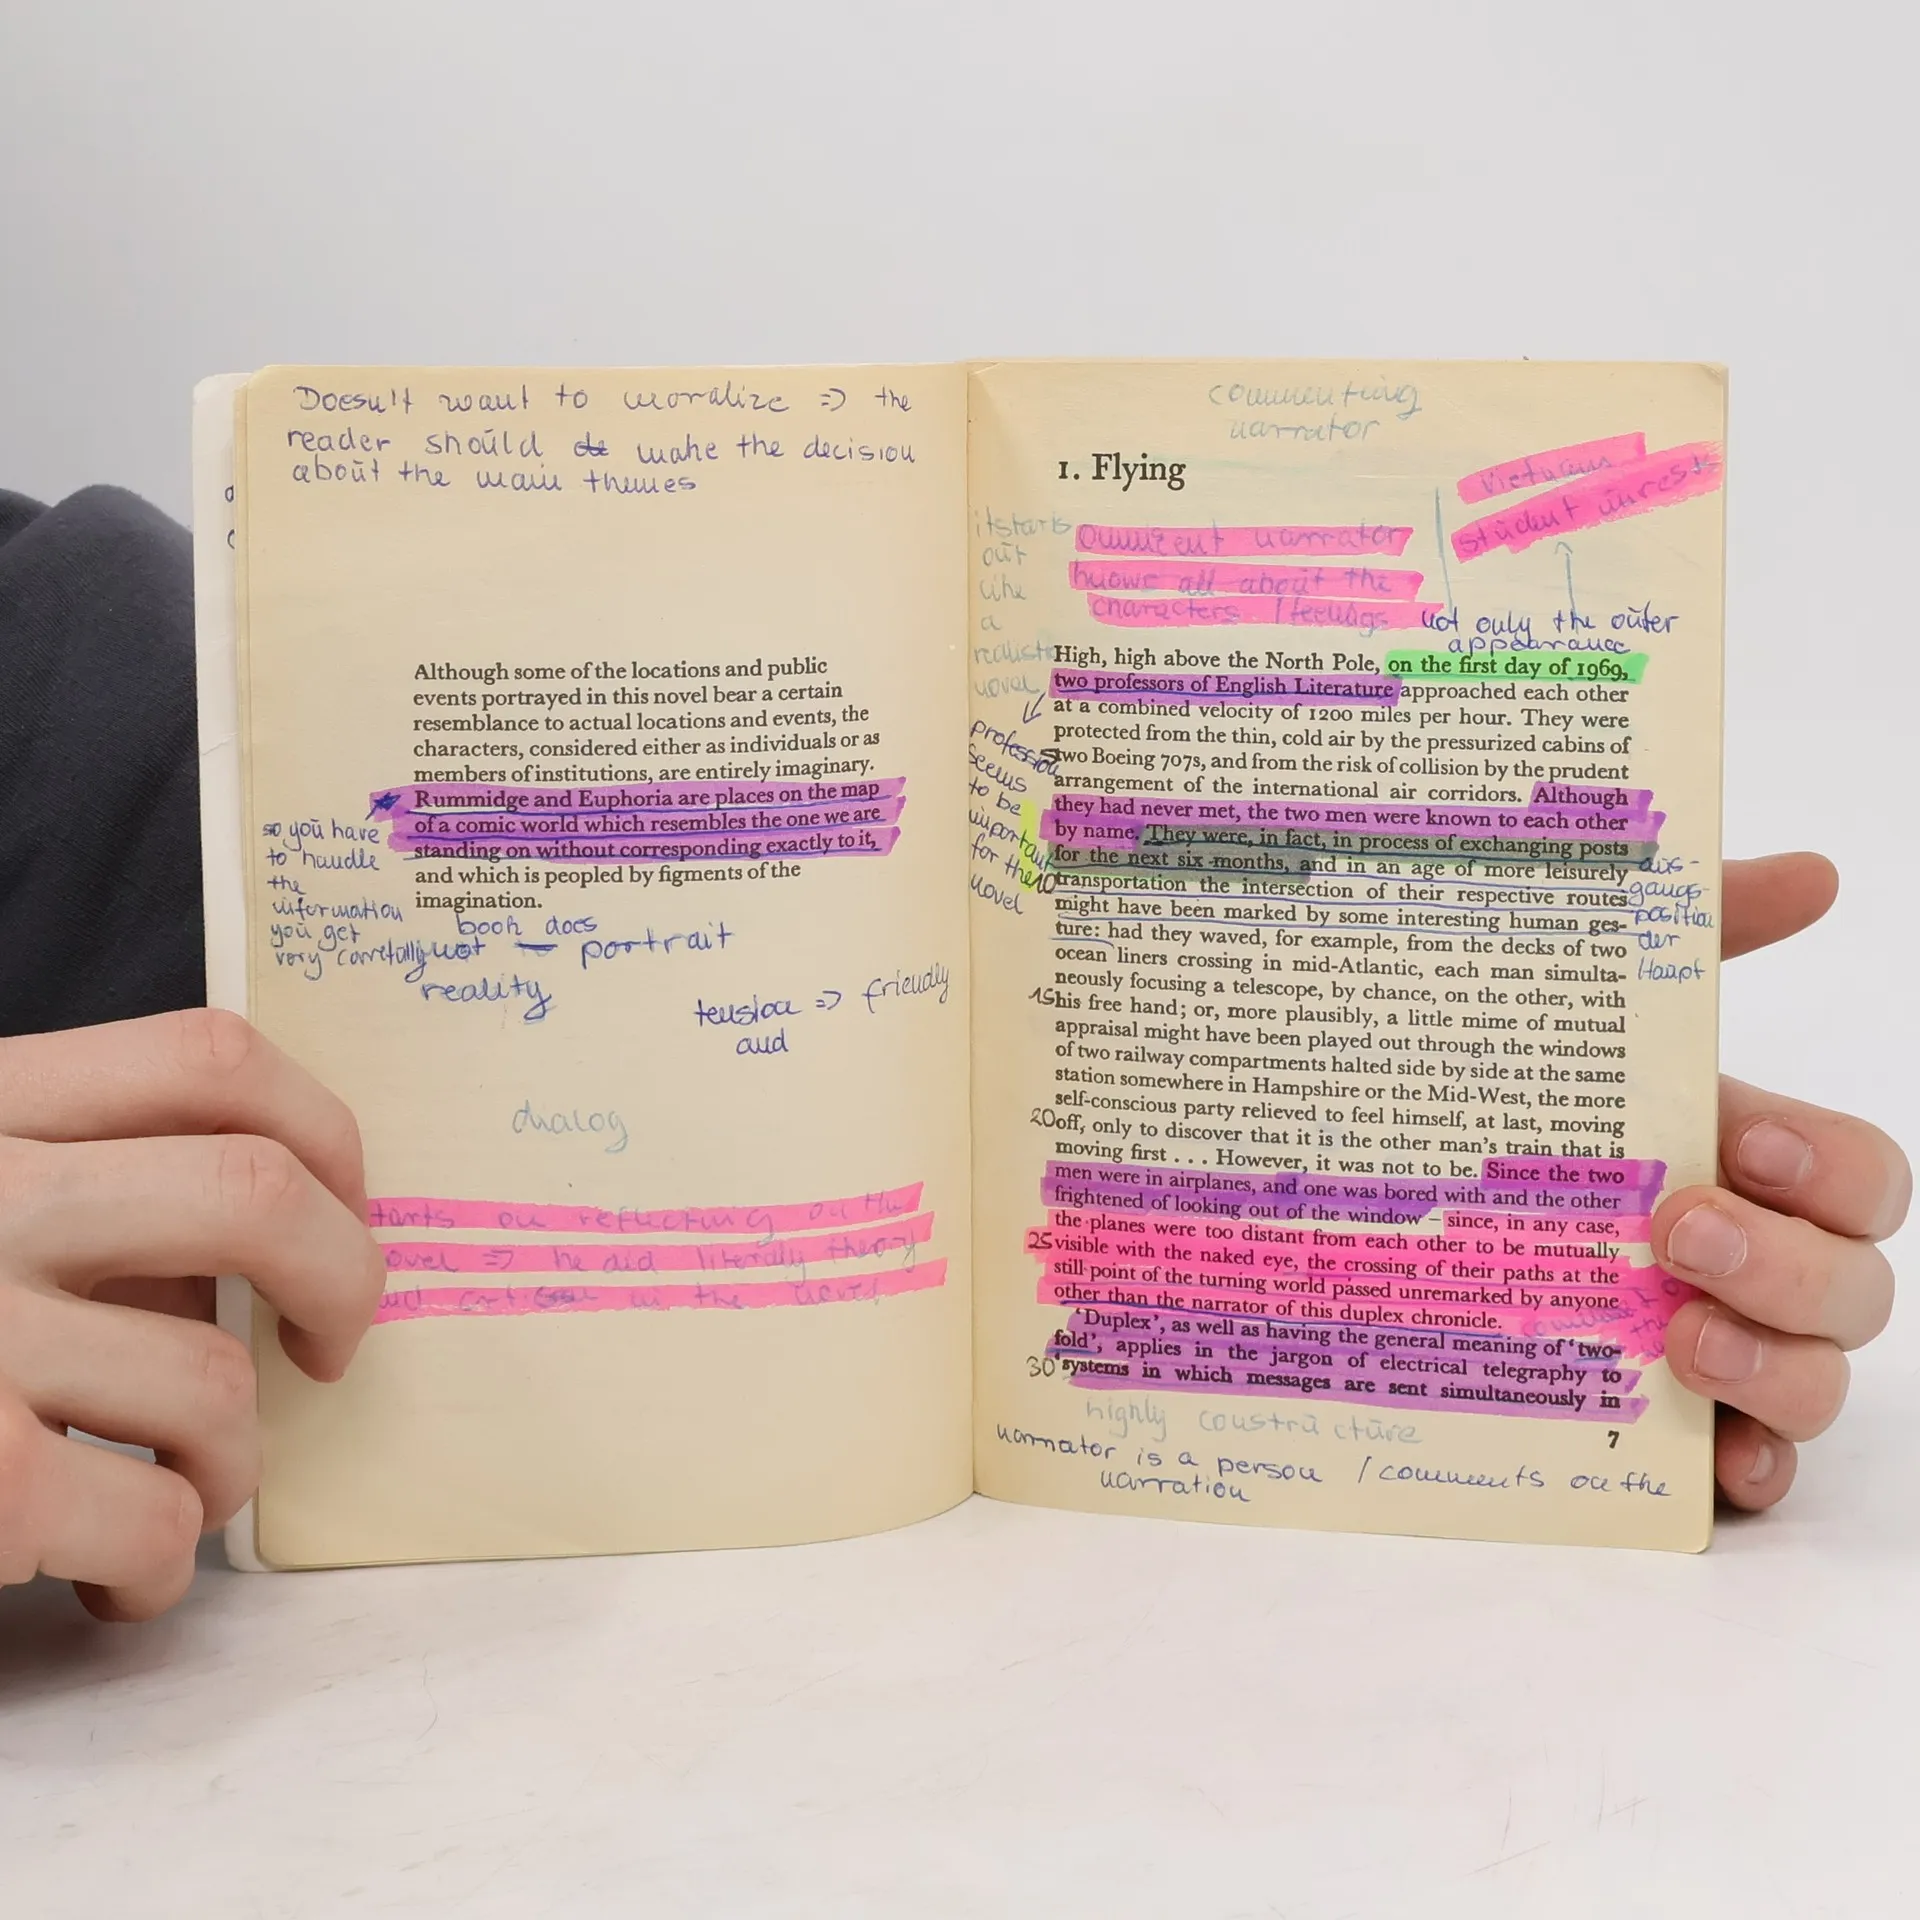 Doesn't want to moralize => the
reader should make the decision
about the main themes
Although some of the locations and public
events portrayed in this novel bear a certain
resemblance to actual locations and events, the
characters, considered either as individuals or as
members of institutions, are entirely imaginary.
Rummidge and Euphoria are places on the map
of a comic world which resembles the one we are
standing on without corresponding exactly to it,
and which is peopled by figments of the
imagination.
so you have
to handle
the
information
you get
very carefully
book does
not portrait
reality
tension => friendly
and
dialog
on reflecting on
=> he did literally theory
in the
commenting
narrator
1. Flying
Vietnam
student unrest
narrator
knows all about the
characters / feelings
not only the outer
appearance
it starts
out
like
a
novel
profession
seems
to be
important
for the
novel
High, high above the North Pole, on the first day of 1969,
two professors of English Literature approached each other
at a combined velocity of 1200 miles per hour. They were
protected from the thin, cold air by the pressurized cabins of
5 two Boeing 707s, and from the risk of collision by the prudent
arrangement of the international air corridors. Although
they had never met, the two men were known to each other
by name. They were, in fact, in process of exchanging posts
for the next six months, and in an age of more leisurely
10 transportation the intersection of their respective routes
might have been marked by some interesting human ges-
ture: had they waved, for example, from the decks of two
ocean liners crossing in mid-Atlantic, each man simulta-
neously focusing a telescope, by chance, on the other, with
15 his free hand; or, more plausibly, a little mime of mutual
appraisal might have been played out through the windows
of two railway compartments halted side by side at the same
station somewhere in Hampshire or the Mid-West, the more
self-conscious party relieved to feel himself, at last, moving
20 off, only to discover that it is the other man's train that is
moving first . . . However, it was not to be. Since the two
men were in airplanes, and one was bored with and the other
frightened of looking out of the window – since, in any case,
the planes were too distant from each other to be mutually
25 visible with the naked eye, the crossing of their paths at the
still point of the turning world passed unremarked by anyone
other than the narrator of this duplex chronicle.
'Duplex', as well as having the general meaning of 'two-
fold', applies in the jargon of electrical telegraphy to
30 'systems in which messages are sent simultaneously in
aus-
gangs-
position
der
Haupt
highly constructure
7
narrator is a person / comments on the
narration